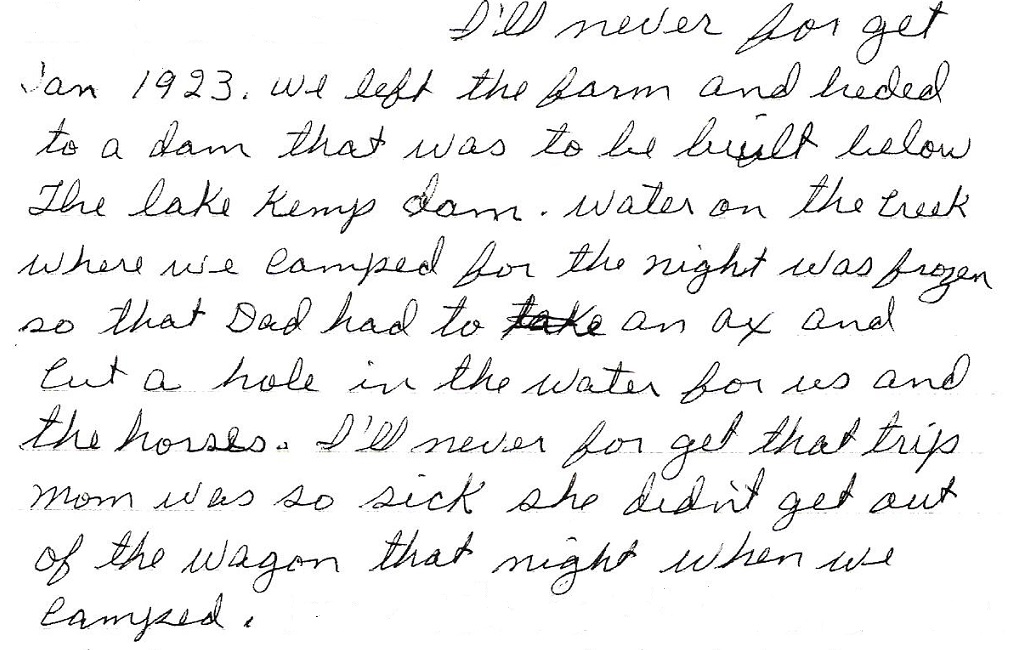 I'll never for get
Jan 1923. we left the farm and heded
to a dam that was to be built below
The lake Kemp dam. water on the creek
where we camped for the night was frozen
so that Dad had to take an ax and
cut a hole in the water for us and
the horses. I'll never for get that trip
mom was so sick she didn't get out
of the wagon that night when we
camped.